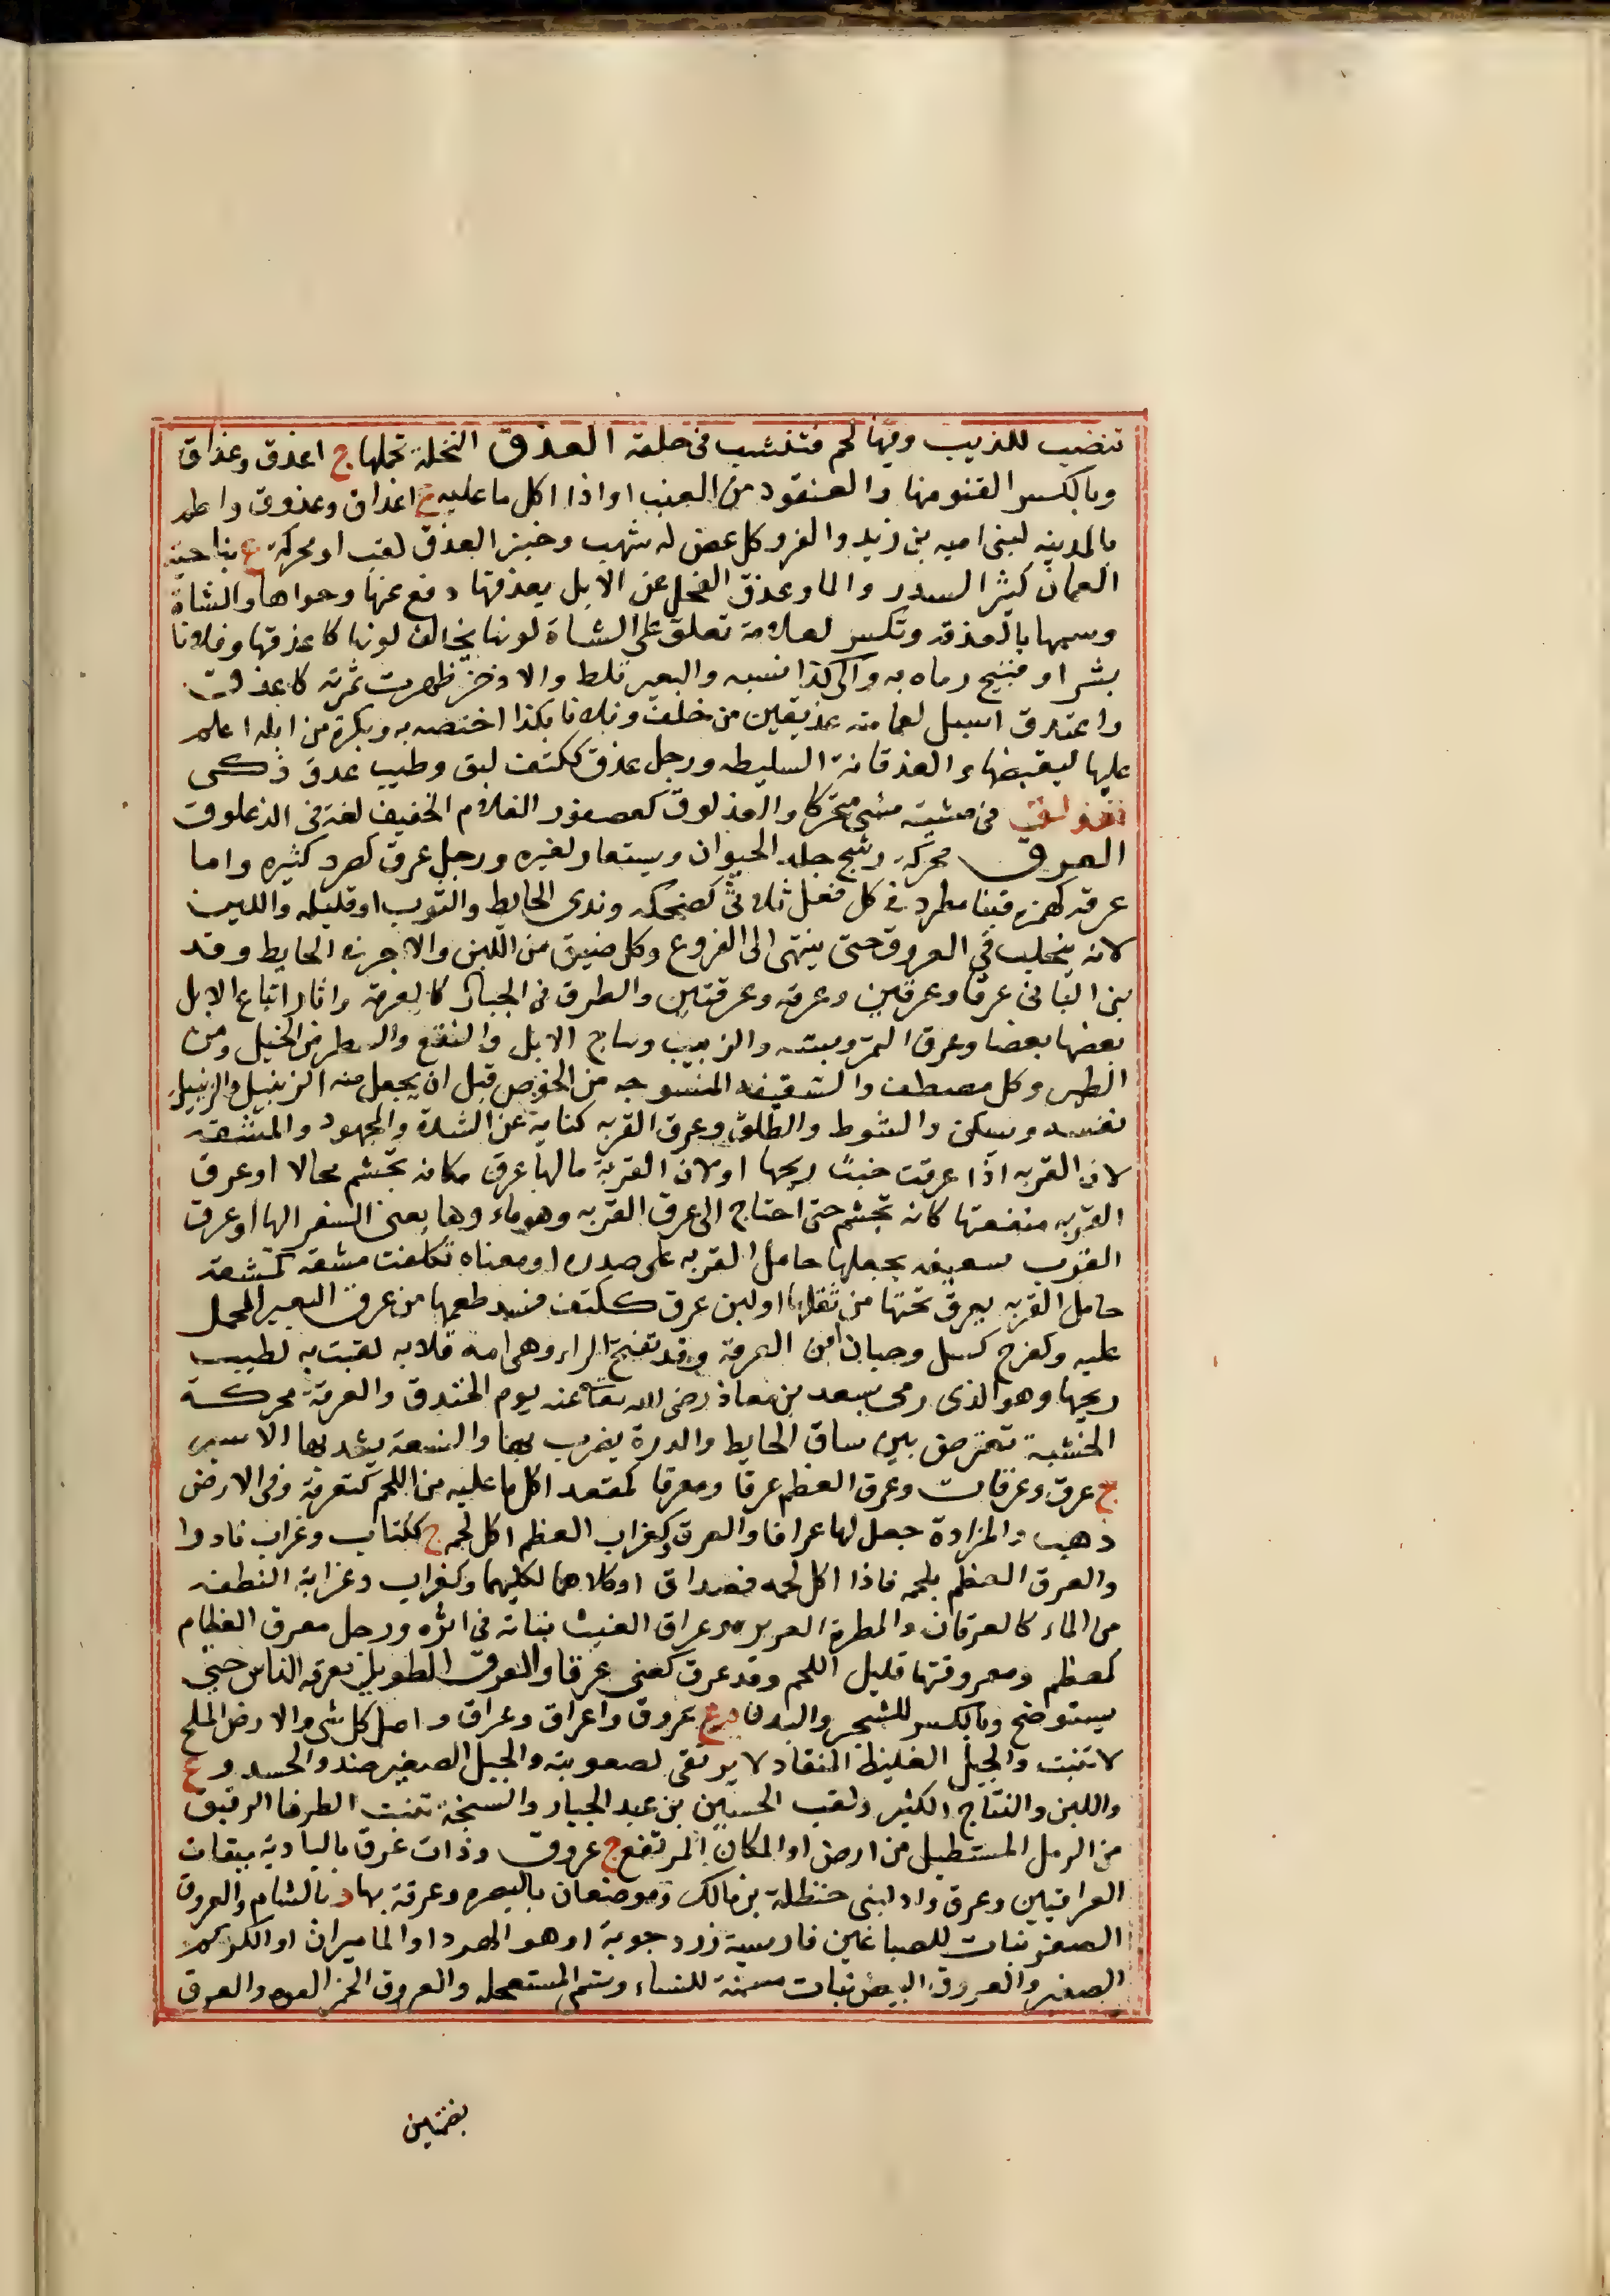 تنصب للذيب وفيها لحم فتنشب فى حلقه العذق النخلة بحملها ج اعذق وعذاق
وبالكسر القنو منها والعنقود من العنب او اذا اكل ما عليه ج اعذاق وعذوق واطم
بالمدينه لبنى اميه بن زيد والعز وكل غصن له شعب وخبز العذق لقب او محركة ع بناحية
العمان كثير السدر والما وعذق الفحل عن الابل يعذقها دفع عنها وحواها والشاة
وسمها بالعذقه وتكسر لعلامة تعلق على الشاة لونها يخالف لونها كاعذقها وفلانا
بشر او قبيح رماه به والى كذا نسبه والبعير ثلط والاذخر ظهرت ثمرته كاعذق
واعتذق اسبل لعمامته عذيقين من خلف وفلانا بكذا اختصه به وبكرة من ابله اعلم
عليها ليقبضها والعذقانة السليطه ورجل عذق ككتف لبق وطيب عذق ذكى
تعذلق فى مشيته مشى متحركا والعذلوق كعصفور الغلام الخفيف لغة فى الذعلوق
العرق محركة رشح جلد الحيوان ويستعار لغيره ورجل عرق كصرد كثيره واما
عرقه كهمزه فبنا مطرد فى كل فعل ثلاثى كضحكه وندى الحايط والثوب او قليله واللبن
لانه يتحلب فى العروق حتى ينتهى الى الضروع وكل ضيق من اللبن والاجر فى الحايط وقد
بنى البانى عرقا وعرقين وعرقه وعرقتين والطرق فى الجبال كالعرقة واثار اتباع الابل
بعضها بعضا وعرق التمر دبسه والزبيب ونتاج الابل والنفع والسطر من الخيل ومن
الطير وكل مصطف والشقيفه المنسوجه من الخوص قبل ان يجعل منه الزنبيل والزنبيل
نفسه ويسكن والشوط والطلق وعرق القربه كناية عن الشدة والمجهود والمشقه
لان القربه اذا عرقت خبث ريحها او لان القربة مالها عرق فكانه تجشم محالا او عرق
القربه منفعتها كانه تجشم حتى احتاج الى عرق القربه وهو ماوها يعنى السفر اليها او عرق
القرب سفيفه يجعلها حامل القربه على صدره او معناه تكلفت مشقة كمشقة
حامل القربه يعرق تحتها من ثقلها او لبن عرق ككتف فسد طعمها من عرق البعير المحمل
عليه وكفرح كسل وحبان ابن العرقة وقد تفتح الراء وهى امه قلابه لقبت به لطيب
ريحها وهو الذى رمى سعد بن معاذ رضى الله تعالى عنه يوم الخندق والعرقة محركة
الخشبة تعترض بين ساق الحايط والدرة يضرب بها والنسعة يشد بها الاسير
ج عرق وعرقات وعرق العظم عرقا ومعرقا كمقعد اكل ما عليه من اللحم كتعرقة وفى الارض
ذهب والمزادة جعل لها عراقا والعرق وكغراب العظم اكل لحمه ج ككتاب وغراب نادر او
والعرق العظم بلحمه فاذا اكل لحمه فعراق او كلاهما لكليهما وكغراب وغرابة النطفه
من الماء كالعرقان والمطرة الغزيره وعراق الغيث نباته فى اثره ورجل معرق العظام
كمعظم ومعروقتها قليل اللحم وقد عرق كعنى عرقا والعرق الطويل تعرقه الناس حتى
يستوضح وبالكسر للشجر والبدن م ج عروق واعراق وعراق واصل كل شى والارض الملح
لا تنبت والجبل الغليظ المنقاد لا يرتقى لصعوبته والجبل الصغير ضد والجسد و ع
واللبن والنتاج الكثير ولقب الحسين بن عبد الجبار والسبخة تنبت الطرفا الرقيق
من الرمل المستطيل من ارض او المكان المرتفع ج عروق وذات عرق بالبادية ميقات
العراقيين وعرق واد لبنى حنظلة بن مالك وموضعان بالبصره وعرقة بهاء د بالشام والعروق
الصفر نبات للصباغين فارسية زردجوبة او هو الهرد او الماميران او الكركم
الصغير والعروق البيض نبات مسمنة للنساء وتسم المستعجله والعروق الحمر الفوه والعرق
بضمتين